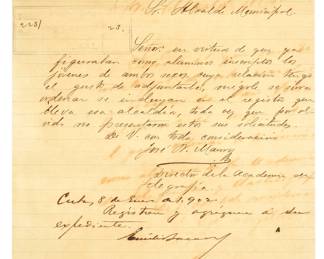 Sr. Alcalde Municipal.
223/ 23.
Señor: en virtud de que ya
figuraban como alumnos inscriptos los
jóvenes de ambos sexos cuya relación tengo
el gusto de adjuntarle, ruegole se sirva
ordenar se incluyan en el registro que
lleva esa alcaldía, toda vez que por ol-
vido no presentaron estos sus solicitudes.
De V. con toda consideración
José
Director de la Academia
Cuba, 8 de Enero 1902
Regístrese y agréguese a su
expediente.